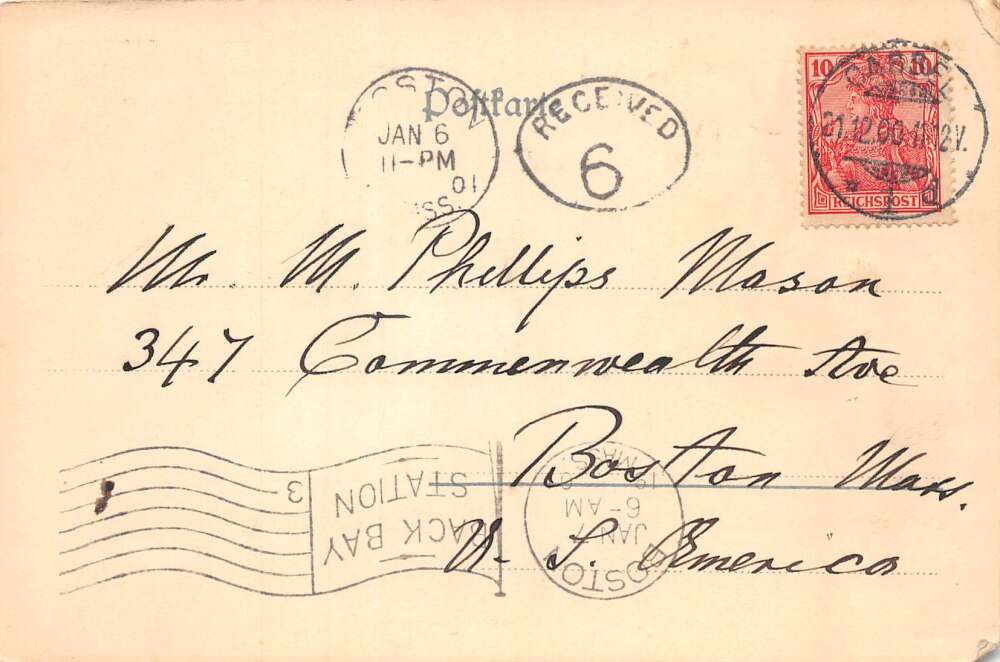 BOSTON
JAN 6
11-PM
01
Postkarte
RECEIVED
6
10 10
REICHSPOST
CASSEL
21.12.00.11-12V.
* 1 d
Mr. M. Phillips Mason
347 Commonwealth Ave
Boston Mass.
U. S. America
BACK BAY
STATION
3
BOSTON
JAN 7
6-AM
MASS.